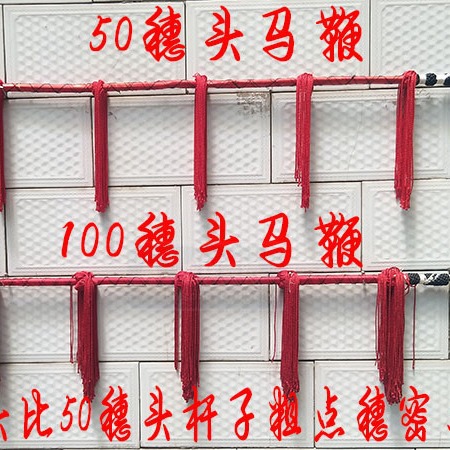 50穗头马鞭
100穗头马鞭
比50穗头杆子粗点穗密